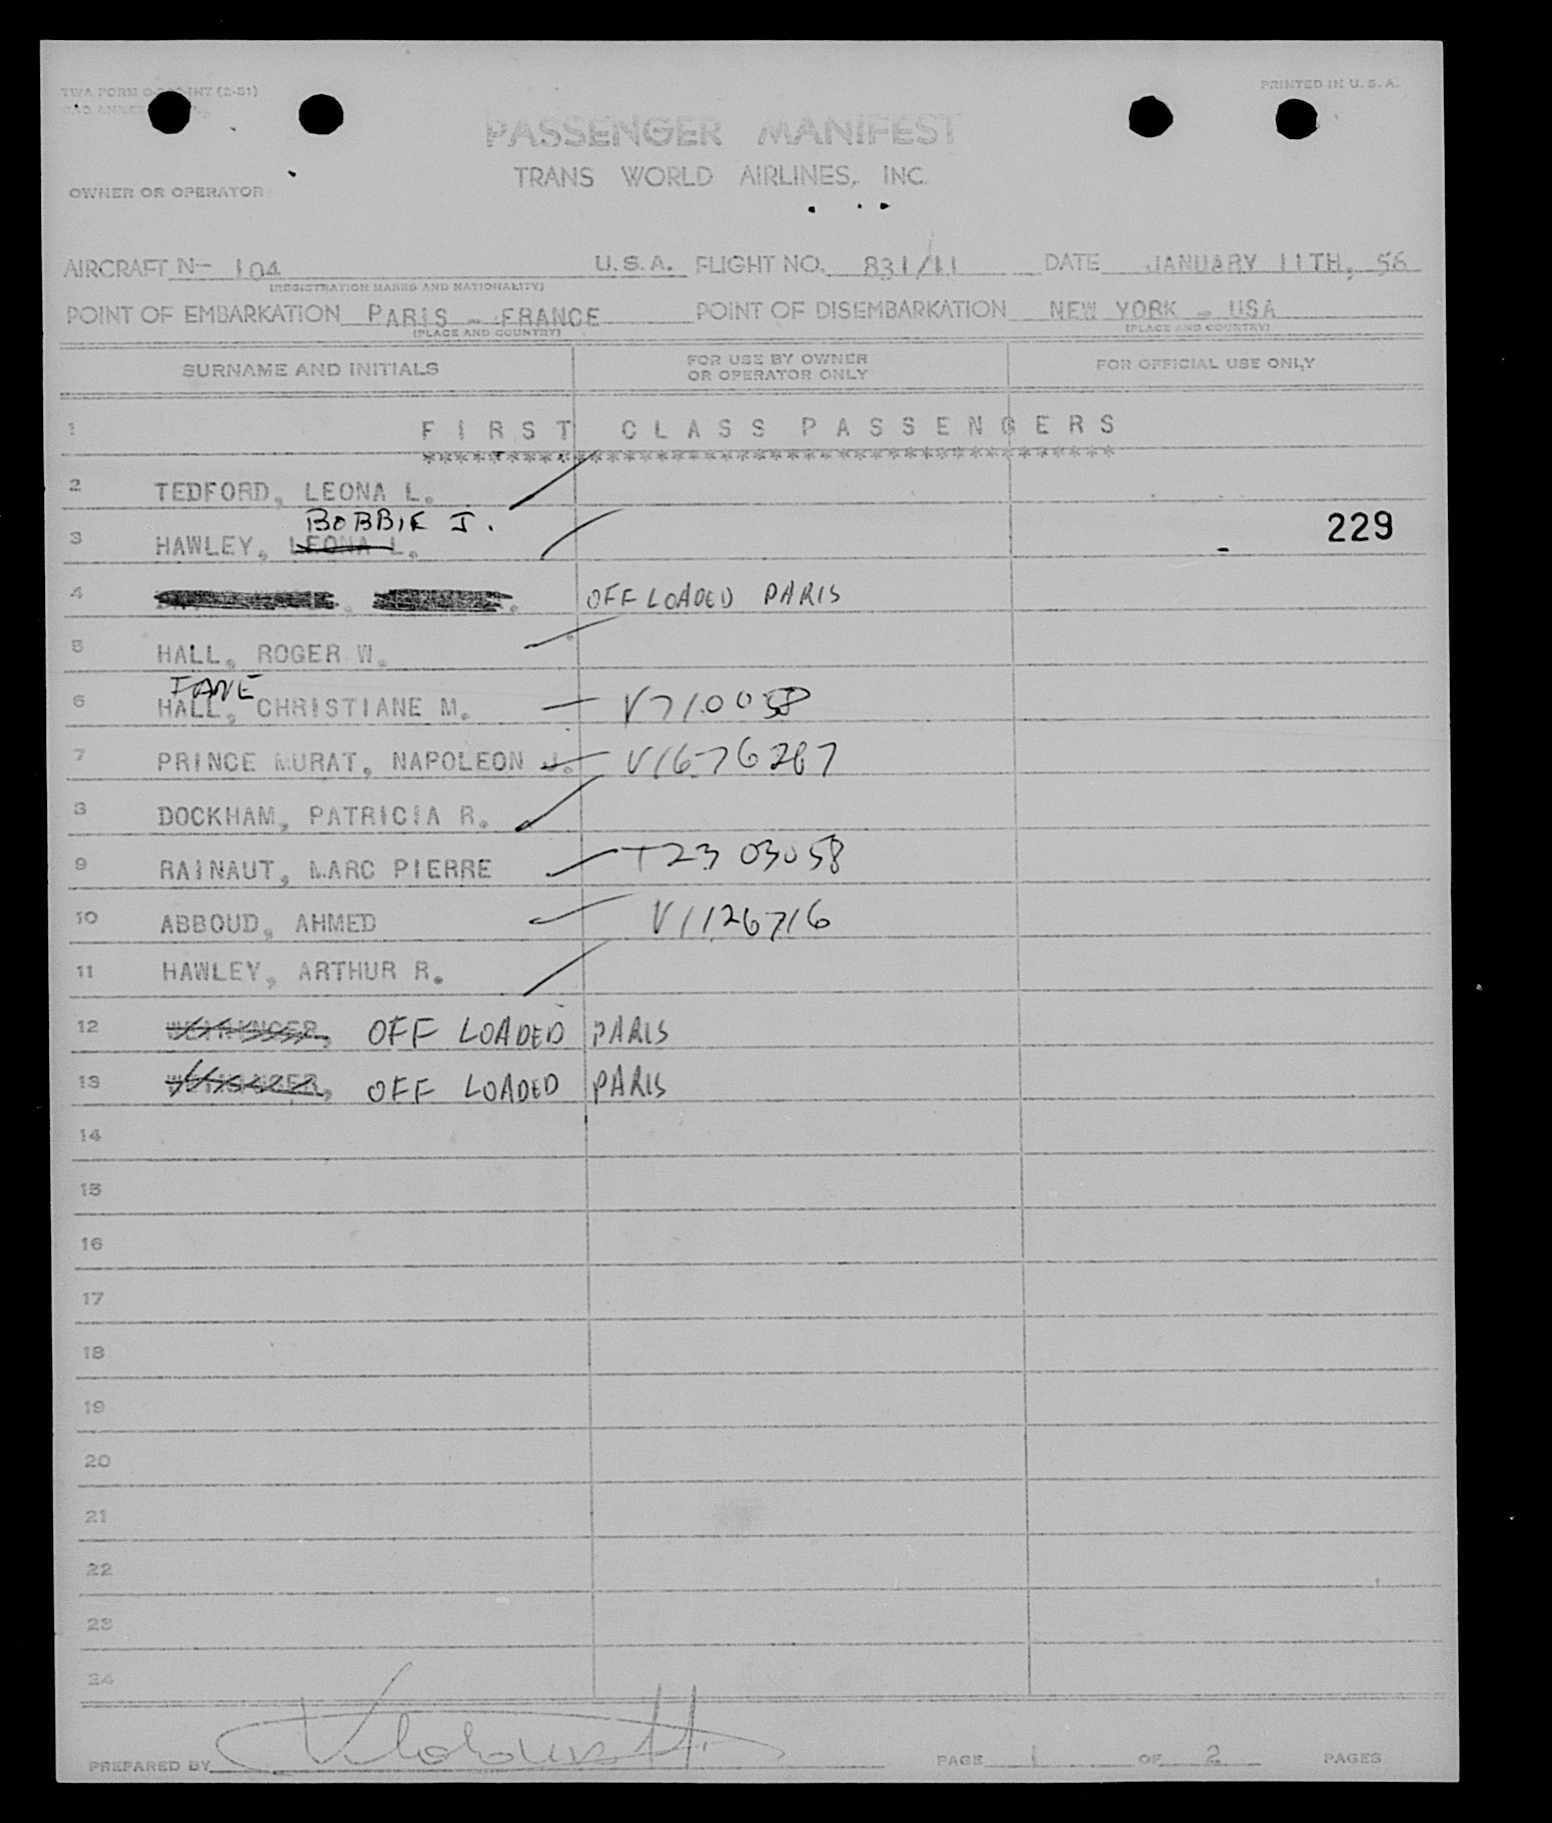 PRINTED IN U.S.A.
PASSENGER MANIFEST
TRANS WORLD AIRLINES, INC.
OWNER OR OPERATOR
AIRCRAFT N- 104 U.S.A. FLIGHT NO. 831/11 DATE JANUARY 11TH, 56
(REGISTRATION MARKS AND NATIONALITY)
POINT OF EMBARKATION PARIS - FRANCE POINT OF DISEMBARKATION NEW YORK - USA
(PLACE AND COUNTRY) (PLACE AND COUNTRY)
SURNAME AND INITIALS FOR USE BY OWNER OR OPERATOR ONLY FOR OFFICIAL USE ONLY
1 FIRST CLASS PASSENGERS
2 TEDFORD, LEONA L.
BOBBIE J.
3 HAWLEY, LEONA L. 229
4 OFF LOADED PARIS
5 HALL, ROGER W.
JANE
6 HALL, CHRISTIANE M. V710058
7 PRINCE MURAT, NAPOLEON J. V1676287
8 DOCKHAM, PATRICIA R.
9 RAINAUT, MARC PIERRE T2303058
10 ABBOUD, AHMED V1126716
11 HAWLEY, ARTHUR R.
12 OFF LOADED PARIS
13 OFF LOADED PARIS
14
15
16
17
18
19
20
21
22
23
24
PREPARED BY PAGE 1 OF 2 PAGES